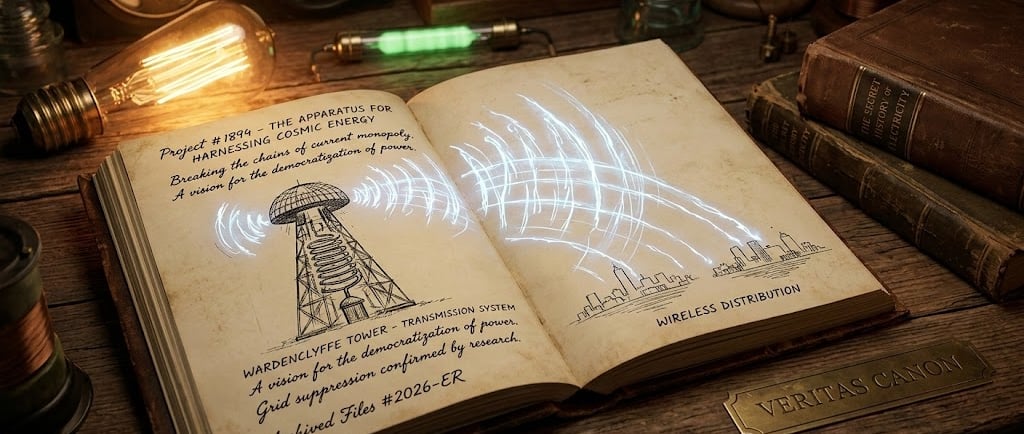 Project #1894 – THE APPARATUS FOR
HARNESSING COSMIC ENERGY
Breaking the chains of current monopoly.
A vision for the democratization of power.
WARDENCLYFFE TOWER – TRANSMISSION SYSTEM
A vision for the democratization of power.
Grid suppression confirmed by research.
Files #2026-ER
WIRELESS DISTRIBUTION
THE SECRET
HISTORY OF
ELECTRICITY
VERITAS CANON